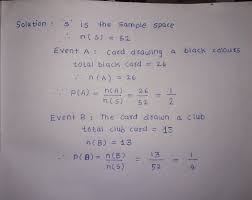 Solution : 's' is the sample space
∴ n(s) = 52
Event A : card drawing a black colours
total black card = 26
∴ n(A) = 26
∴ P(A) = n(A)/n(s) = 26/52 = 1/2
Event B : The card drawn a club
total club card = 13
n(B) = 13
∴ P(B) = n(B)/n(s) = 13/52 = 1/4